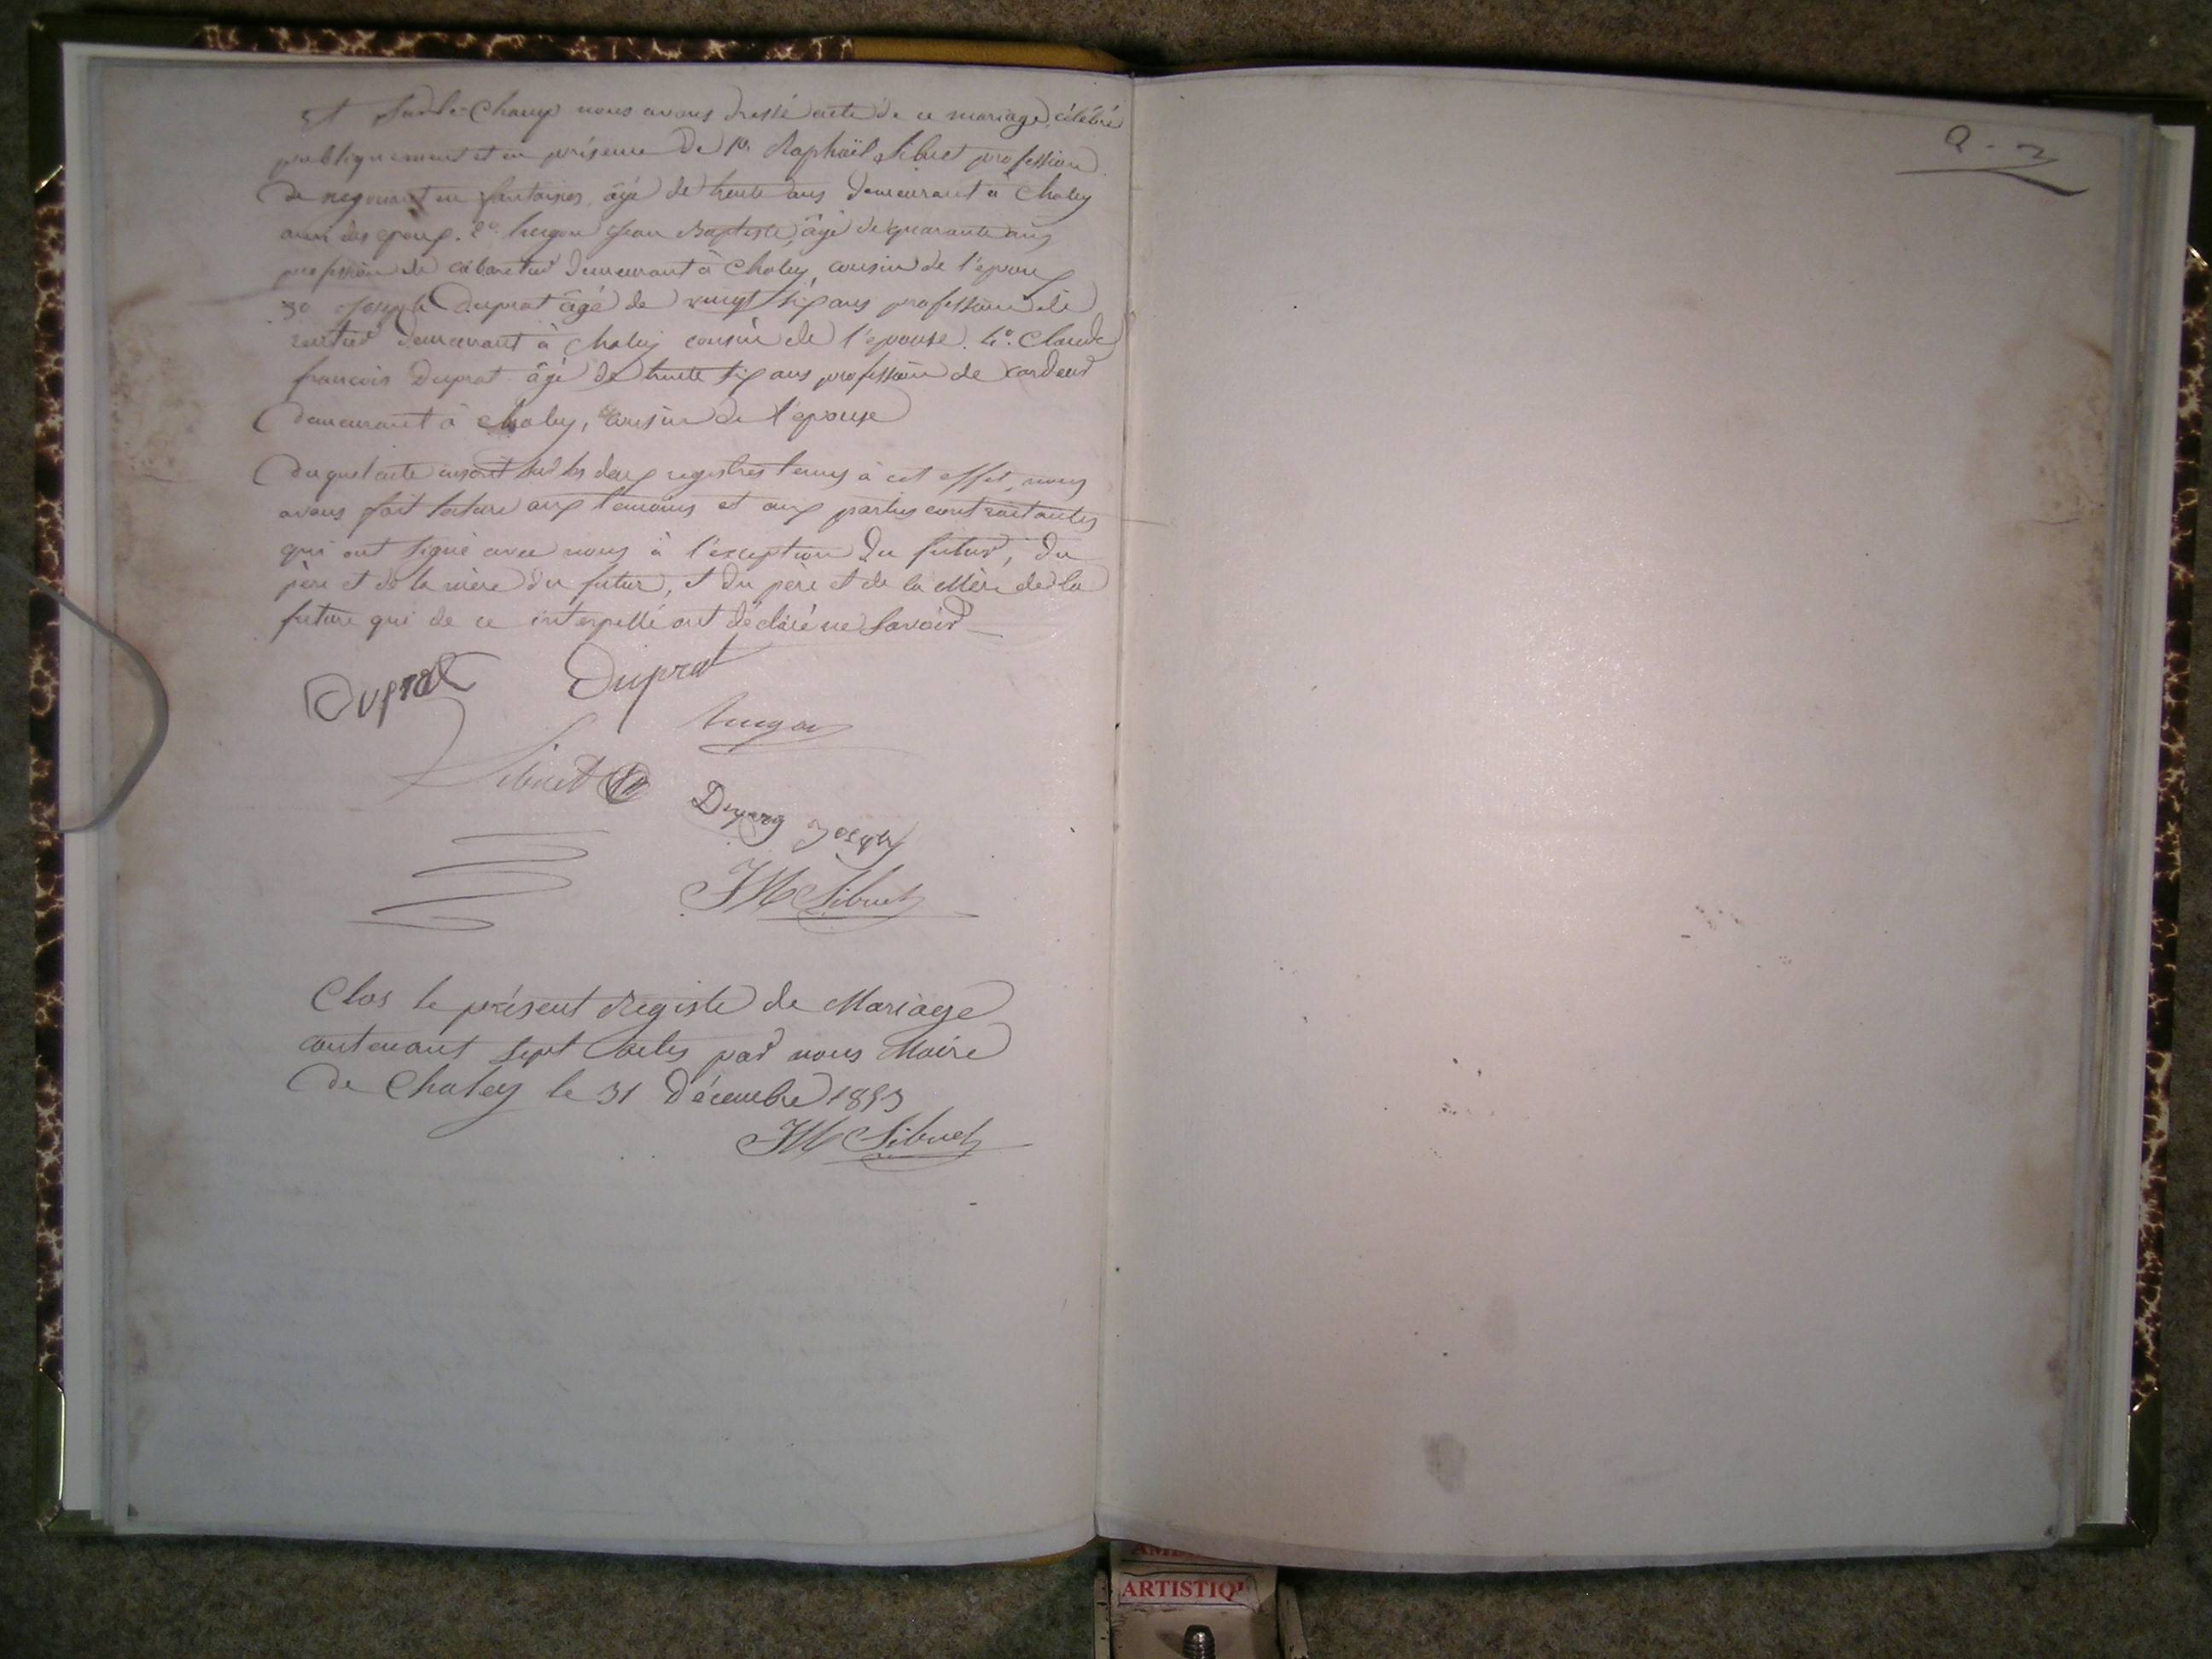 Et sur le Champ nous avons dressé acte de ce mariage célébré
publiquement et en présence De 1o. Raphaël Sibuet profession
de negociant en fantaisies, âgé de trente ans demeurant à Chaley
ami des epoux. 2o. hugon Jean Baptiste, âgé de quarante ans
profession de cabaretier demeurant à Chaley, cousin de l'epoux
3o Joseph Duprat âgé de vingt six ans profession de
rentier demeurant à Chaley cousin de l'epouse. 4o. Claude
francois Duprat âgé de trente six ans profession de Cardeur
demeurant à Chaley, cousin de l'epouse
Duquel acte inscrit sur les deux registres tenus à cet effet, nous
avons fait lecture aux temoins et aux parties contractantes
qui ont signé avec nous à l'exception Du futur, du
père et de la mère du futur, et du père et de la Mère de la
future qui de ce interpellé ont déclaré ne Savoir
Duprat Duprat
hugon
Sibuet
Duprat Joseph
JM Sibuet
Clos le présent Registe de Mariage
contenant sept actes par nous Maire
De Chaley le 31 Décembre 1853
JM Sibuet
ARTISTIQ